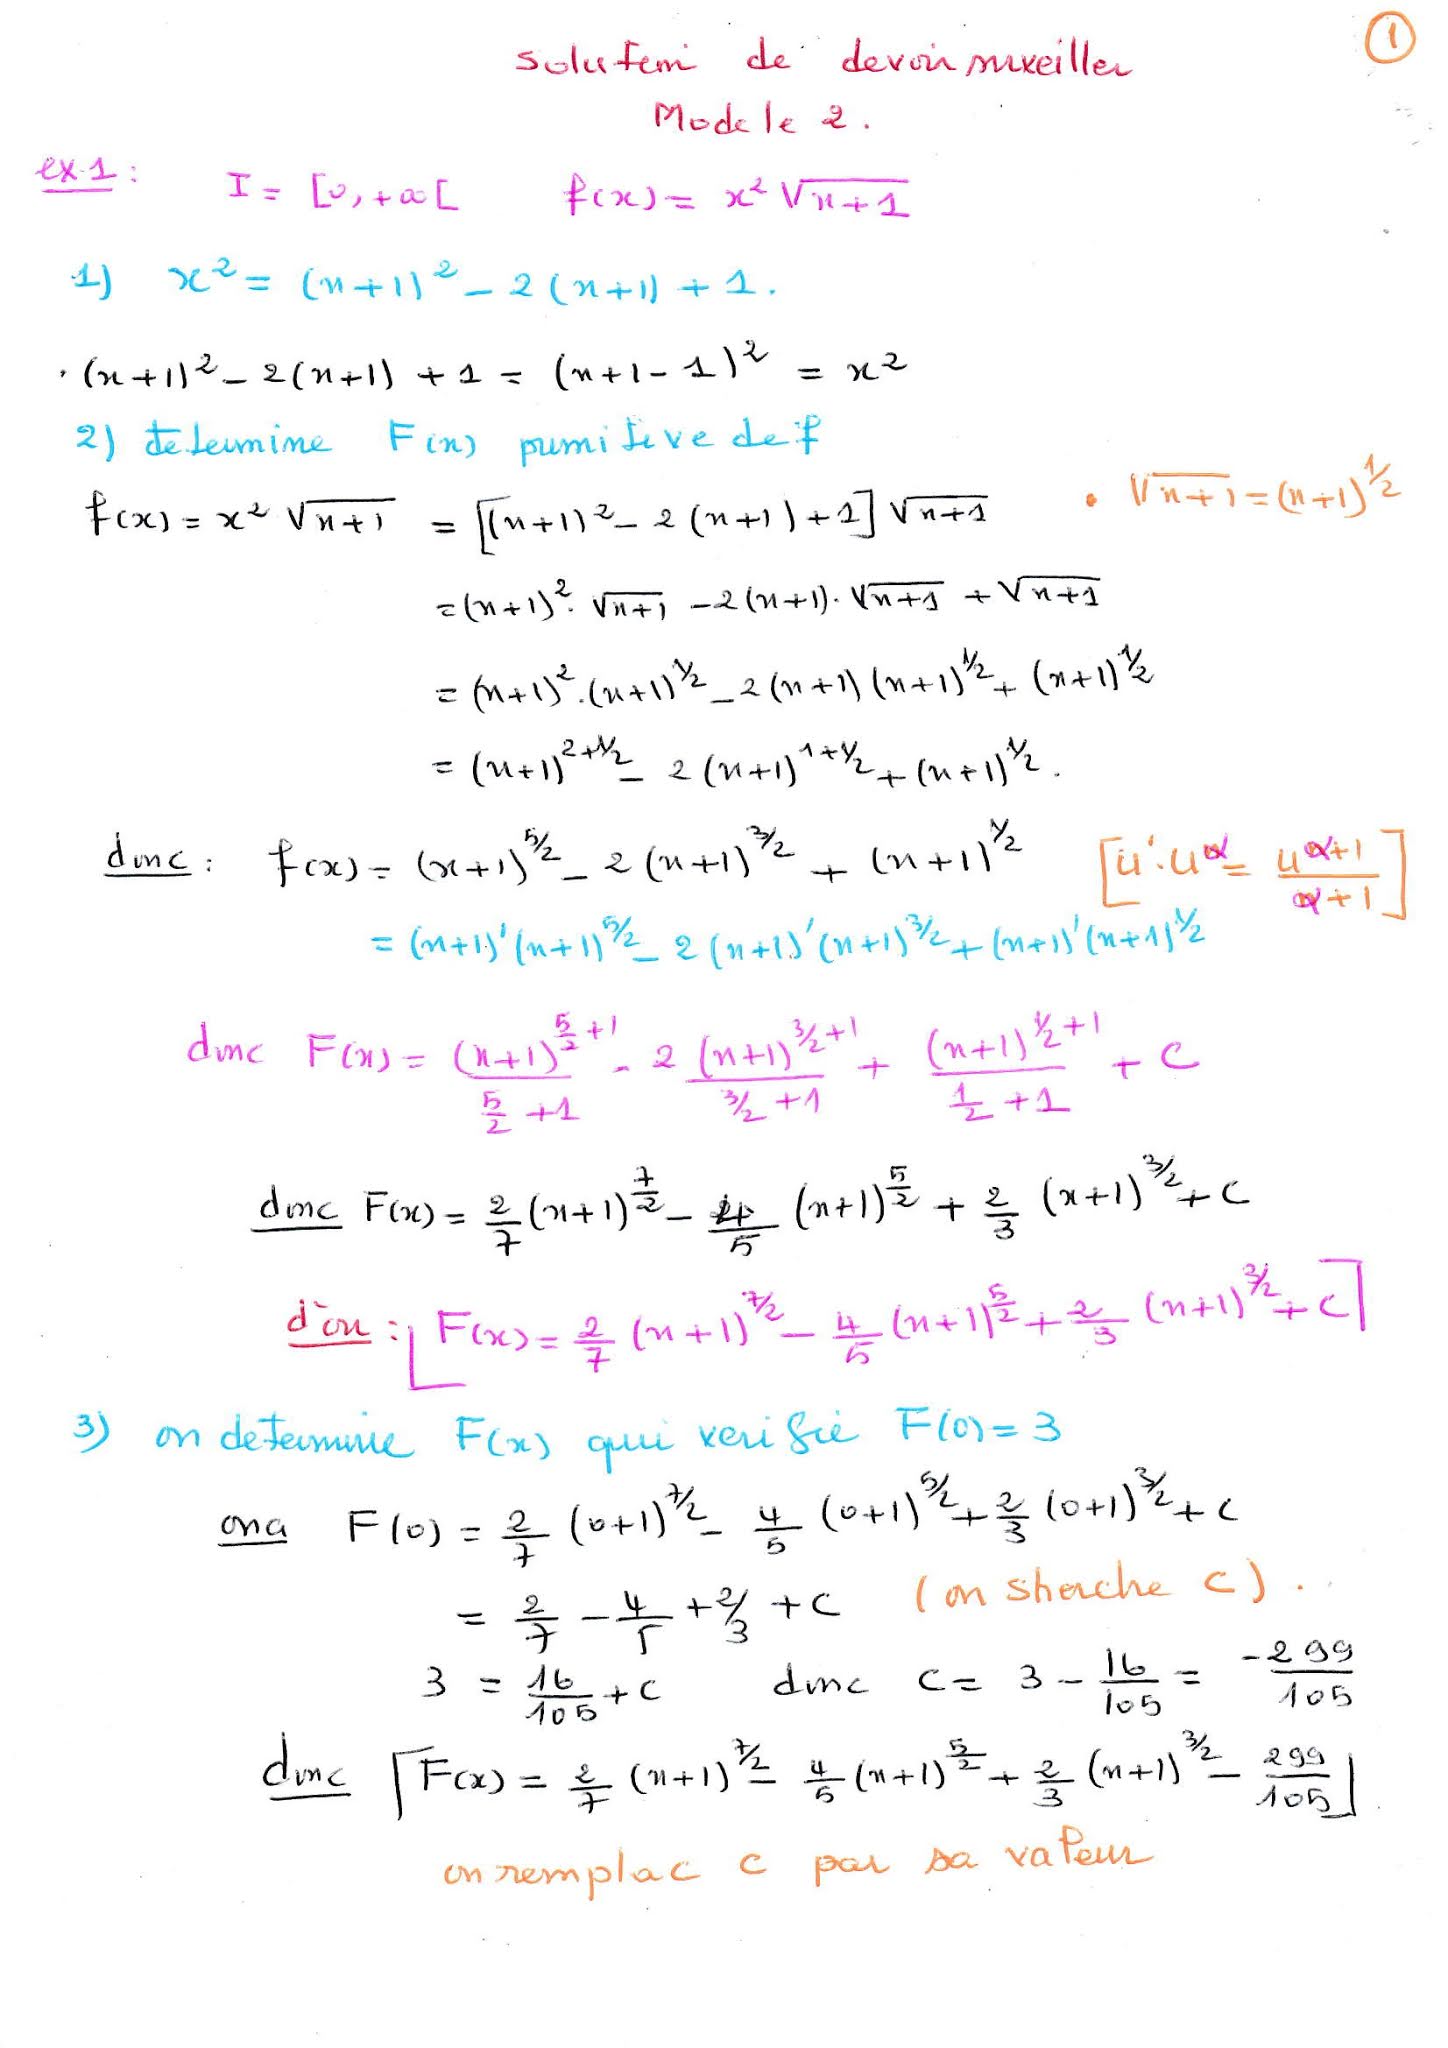 1
solution de devoir surveiller
Modele 2.
ex 1 : I = [0, +∞[ f(x) = x² √(x+1)
1) x² = (x+1)² - 2(x+1) + 1.
. (x+1)² - 2(x+1) + 1 = (x+1-1)² = x²
2) determine F(x) primitive de f
f(x) = x² √(x+1) = [(x+1)² - 2(x+1)+1] √(x+1) • √(x+1) = (x+1)^1/2
= (x+1)². √(x+1) - 2(x+1). √(x+1) + √(x+1)
= (x+1)².(x+1)^1/2 - 2(x+1)(x+1)^1/2 + (x+1)^1/2
= (x+1)^(2+1/2) - 2(x+1)^(1+1/2) + (x+1)^1/2.
donc : f(x) = (x+1)^5/2 - 2(x+1)^3/2 + (x+1)^1/2 [u'.u^α = u^(α+1)/(α+1)]
= (x+1)'(x+1)^5/2 - 2(x+1)'(x+1)^3/2 + (x+1)'(x+1)^1/2
donc F(x) = (x+1)^(5/2+1)/(5/2+1) - 2 (x+1)^(3/2+1)/(3/2+1) + (x+1)^(1/2+1)/(1/2+1) + C
donc F(x) = 2/7 (x+1)^7/2 - 4/5 (x+1)^5/2 + 2/3 (x+1)^3/2 + C
d'ou : [F(x) = 2/7 (x+1)^7/2 - 4/5 (x+1)^5/2 + 2/3 (x+1)^3/2 + C]
3) on determine F(x) qui verifie F(0) = 3
ona F(0) = 2/7 (0+1)^7/2 - 4/5 (0+1)^5/2 + 2/3 (0+1)^3/2 + C
= 2/7 - 4/5 + 2/3 + C (on sherche C).
3 = 16/105 + C donc C = 3 - 16/105 = -299/105
donc [F(x) = 2/7 (x+1)^7/2 - 4/5 (x+1)^5/2 + 2/3 (x+1)^3/2 - 299/105]
on remplac c par sa valeur